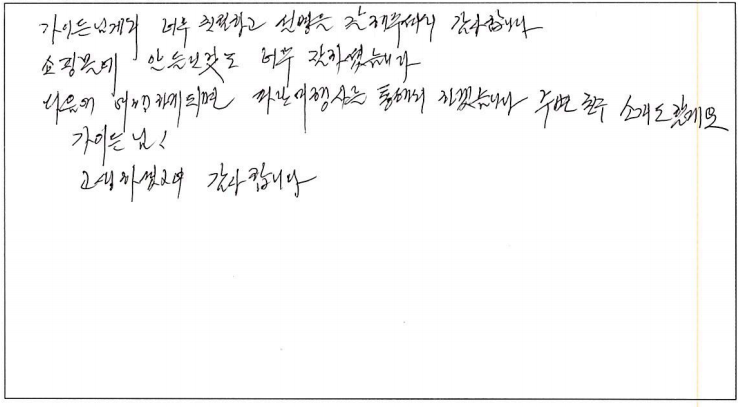 가이드님께서 너무 친절하고 설명을 잘해주셔서 감사합니다
쇼핑몰에 안들린것도 너무 잘하셨습니다
다음에 여행하게되면 여행사를 통해서 가겠습니다 주변 친구 소개도 할게요
가이드님!
고생하셨고여 감사합니다